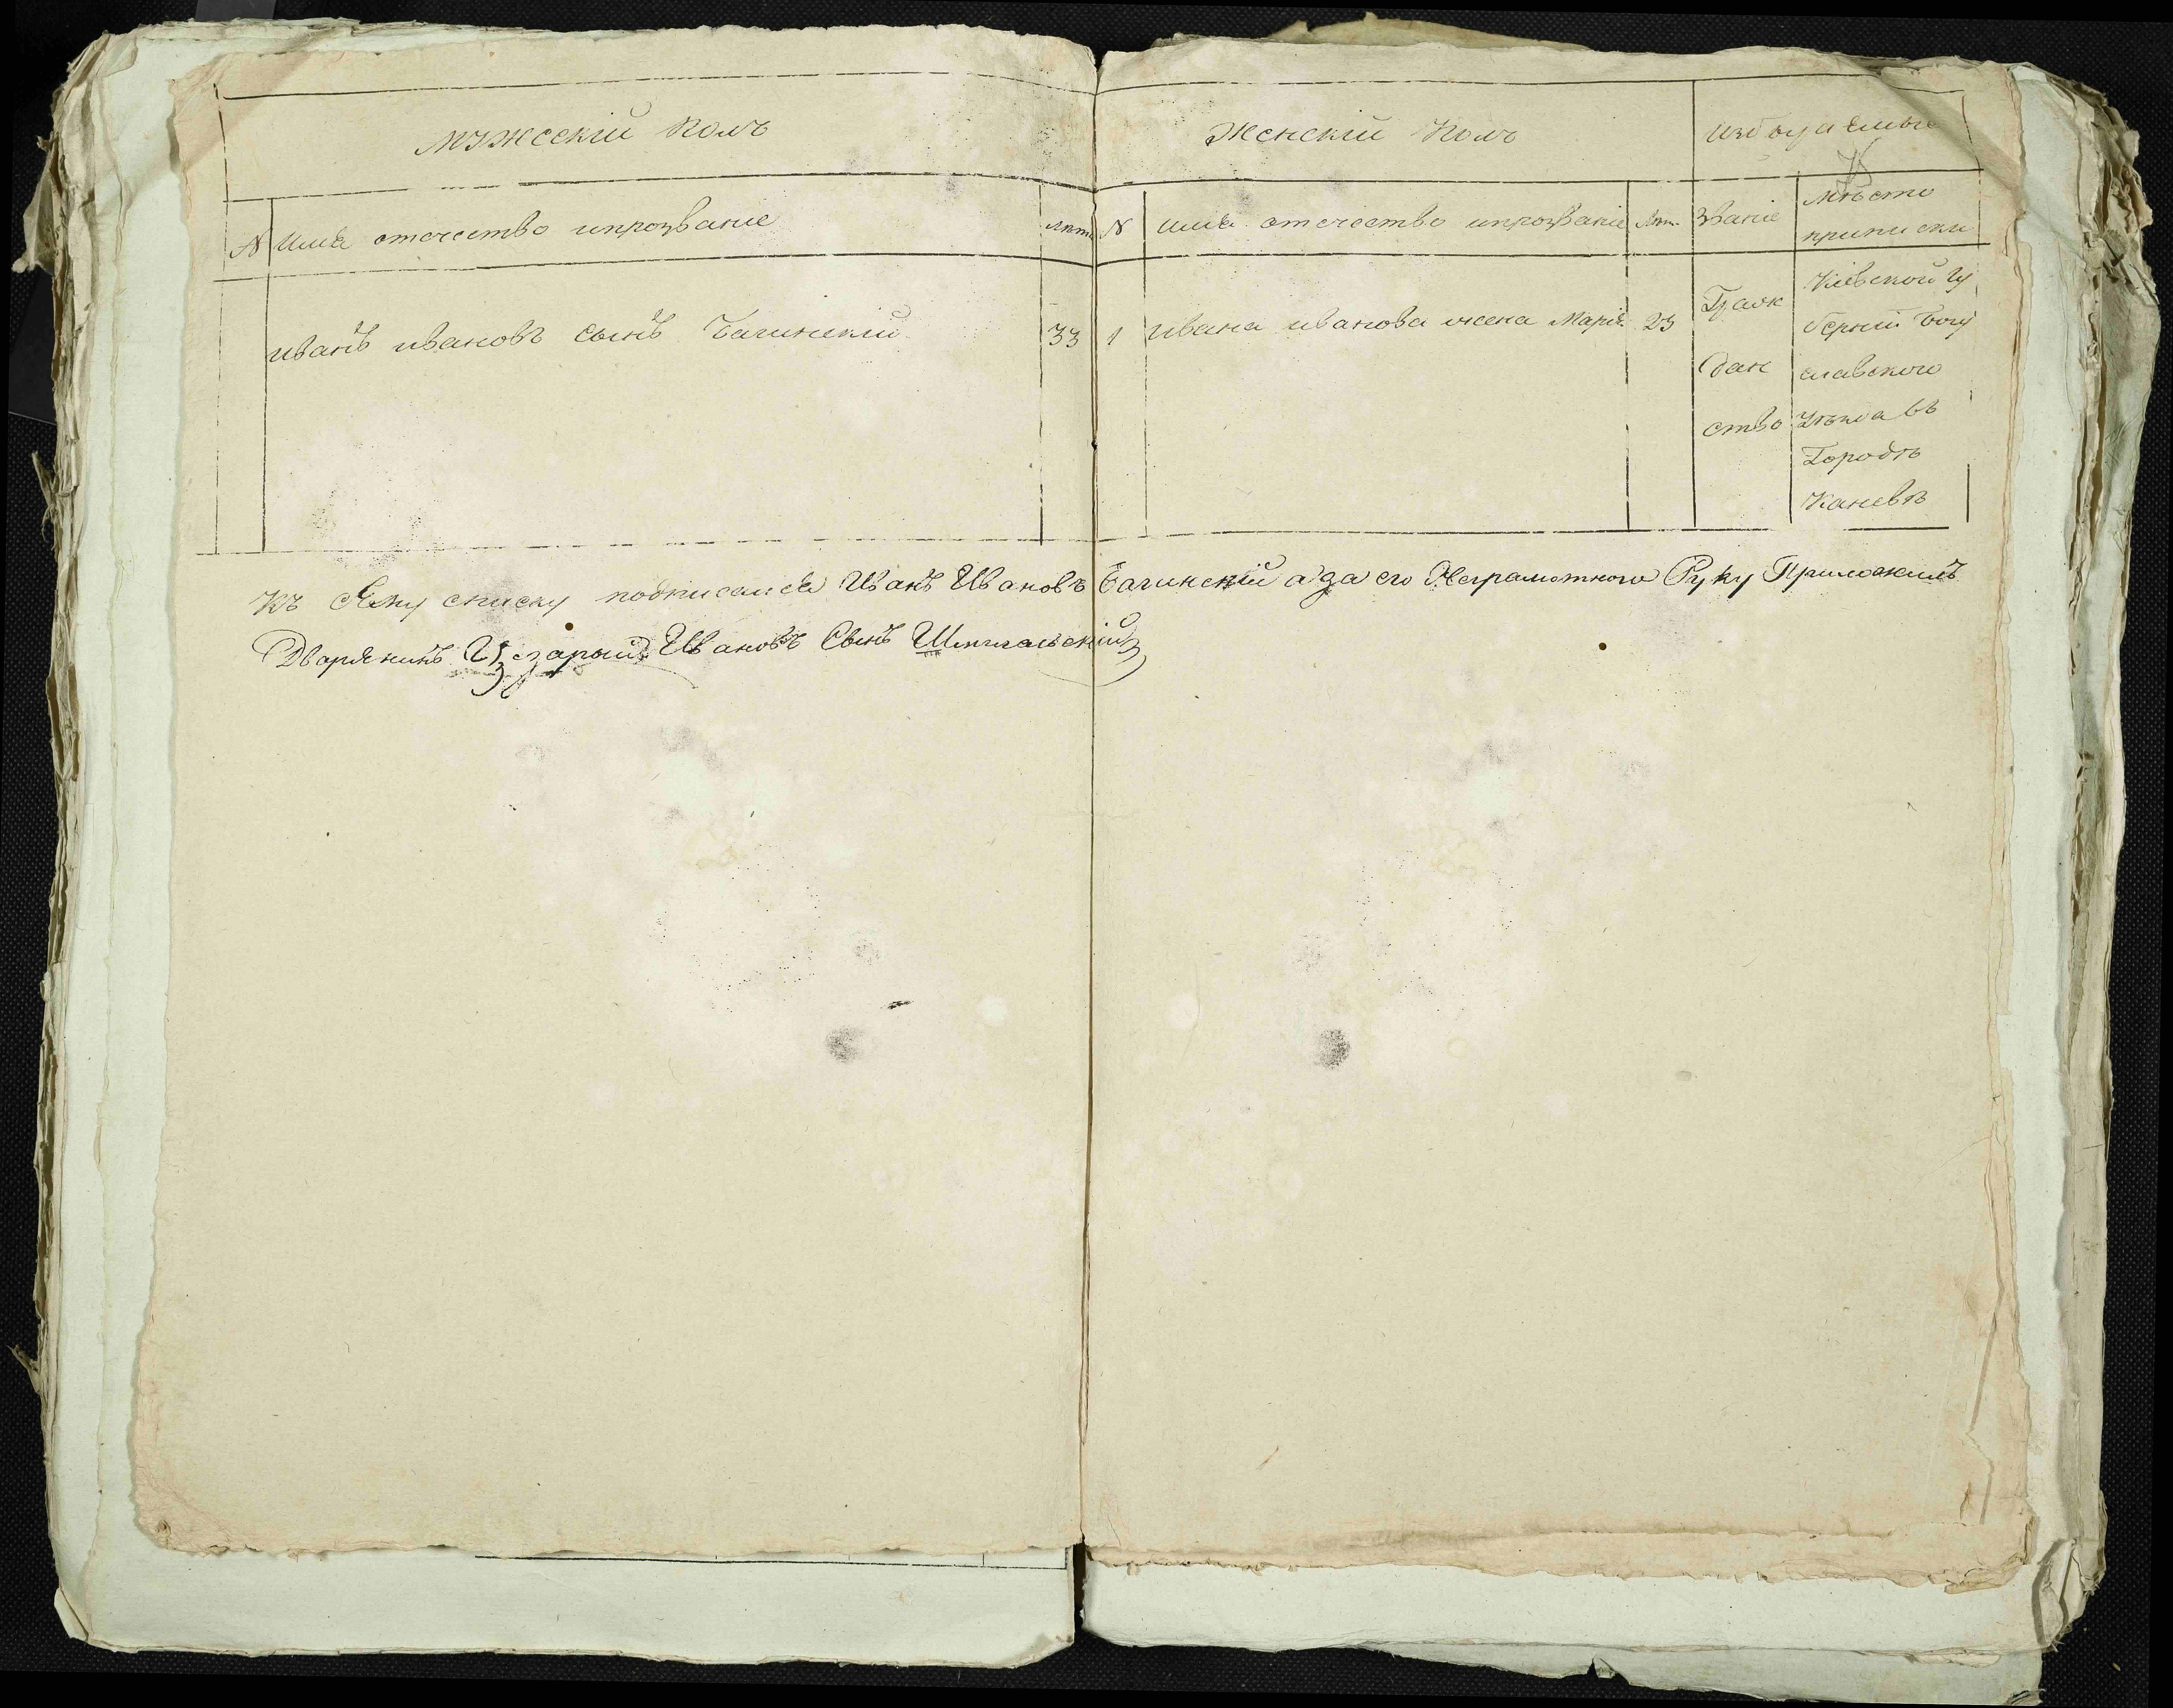 Мужескій Полъ
Женскій Полъ
N Имя отечество ипрозваніе
лѣта
N имя отечество ипрозваніе
Лѣт.
Званіе
Мѣсто
приписки
иванъ ивановъ сынъ Багинскій
33
1 ивана иванова жена Марія
23
Граж
дан
ство
Кіевской Гу
берніи Богу
славского
уѣзда въ
Городѣ
Каневѣ
Къ сему списку подписался Иванъ Ивановъ Багинскій а за его Неграмотного Руку Приложилъ
Дворянинъ Ивановъ Сынъ